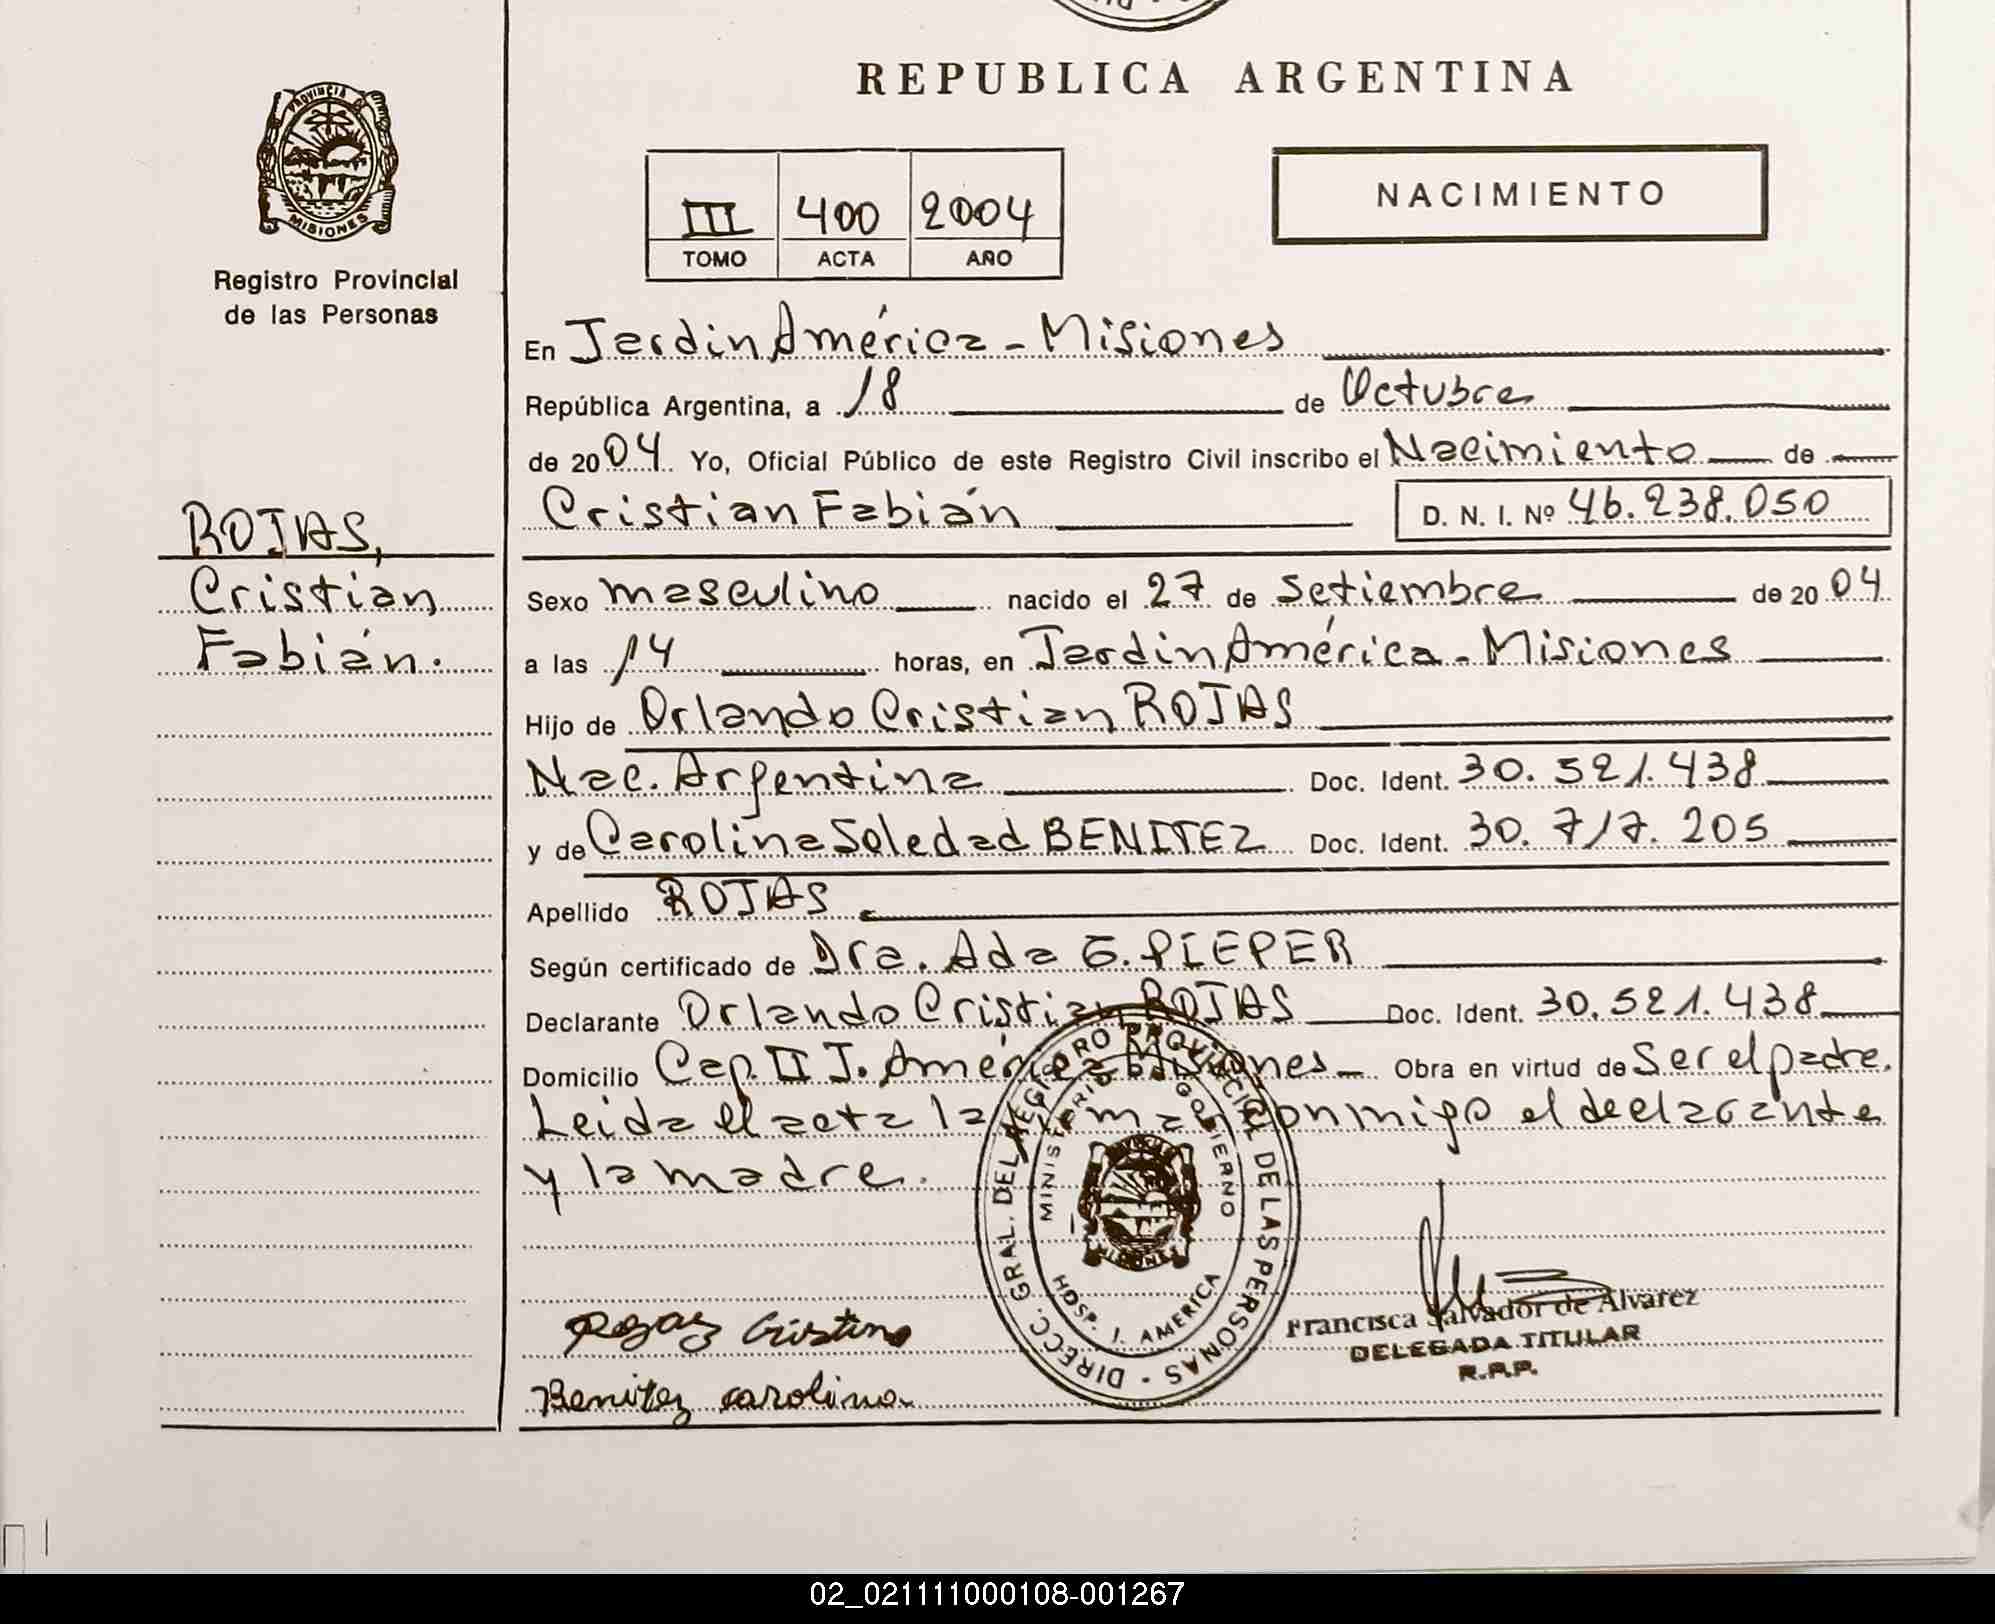 REPUBLICA ARGENTINA
PROVINCIA DE
MISIONES
Registro Provincial
de las Personas
III 400 2004
TOMO ACTA AÑO
NACIMIENTO
ROJAS,
Cristian
Fabián.
En Jardin América - Misiones
República Argentina, a 18 de Octubre
de 2004 Yo, Oficial Público de este Registro Civil inscribo el Nacimiento de
Cristian Fabián D. N. I. Nº 46.238.050
Sexo masculino nacido el 27 de Setiembre de 2004
a las 14 horas, en Jardin América - Misiones
Hijo de Orlando Cristian ROJAS
Nac. Argentina Doc. Ident. 30.521.438
y de Carolina Soledad BENITEZ Doc. Ident. 30.717.205
Apellido ROJAS
Según certificado de Dra. Ada G. PIEPER
Declarante Orlando Cristian ROJAS Doc. Ident. 30.521.438
Domicilio Cap. II J. América Misiones - Obra en virtud de Ser el padre.
Leida el acta la firman conmigo el declarante
y la madre.
DIRECC. GRAL. DEL REGISTRO PROVINCIAL DE LAS PERSONAS
MINISTERIO DE GOBIERNO
MISIONES
HOSP. J. AMERICA
Rojas Cristian
Benitez carolina
Francisca Salvador de Alvarez
DELEGADA TITULAR
R.P.P.
02_021111000108-001267